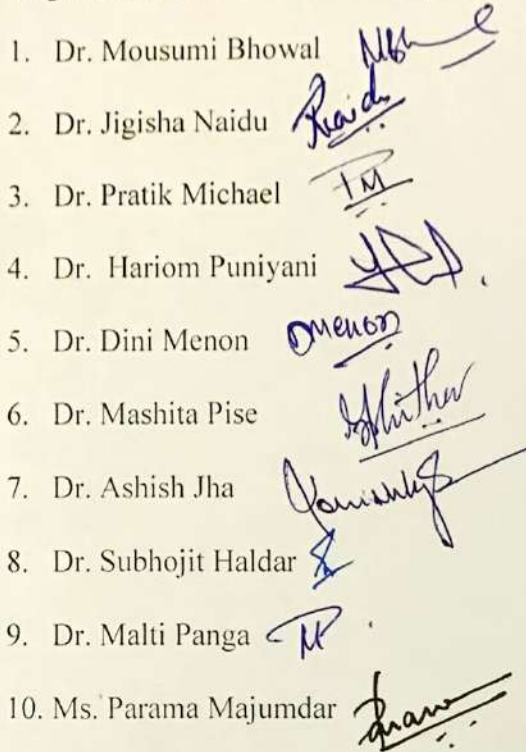 1. Dr. Mousumi Bhowal
2. Dr. Jigisha Naidu Naidu
3. Dr. Pratik Michael PM
4. Dr. Hariom Puniyani
5. Dr. Dini Menon DMenon
6. Dr. Mashita Pise
7. Dr. Ashish Jha
8. Dr. Subhojit Haldar
9. Dr. Malti Panga MP
10. Ms. Parama Majumdar